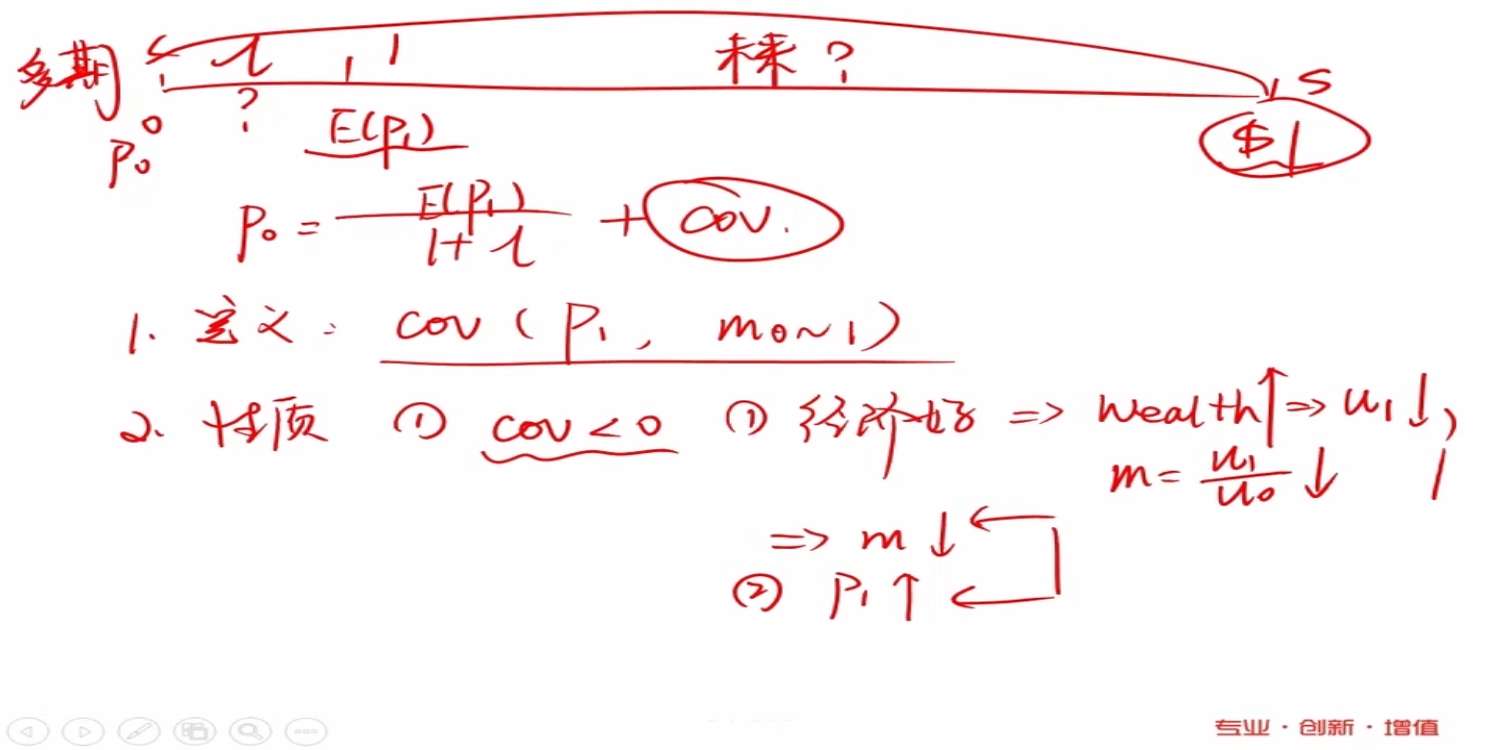 多期 l 1 未来? s
0 ? E(P₁) $1
P₀
P₀ = E(P₁) / 1+l + cov.
1. 定义: cov(P₁, m0~1)
2. 性质 ① cov<0 ① 经济好 => wealth↑ => u₁↓,
m = u₁/u₀ ↓
=> m ↓
② P₁ ↑
专业·创新·增值